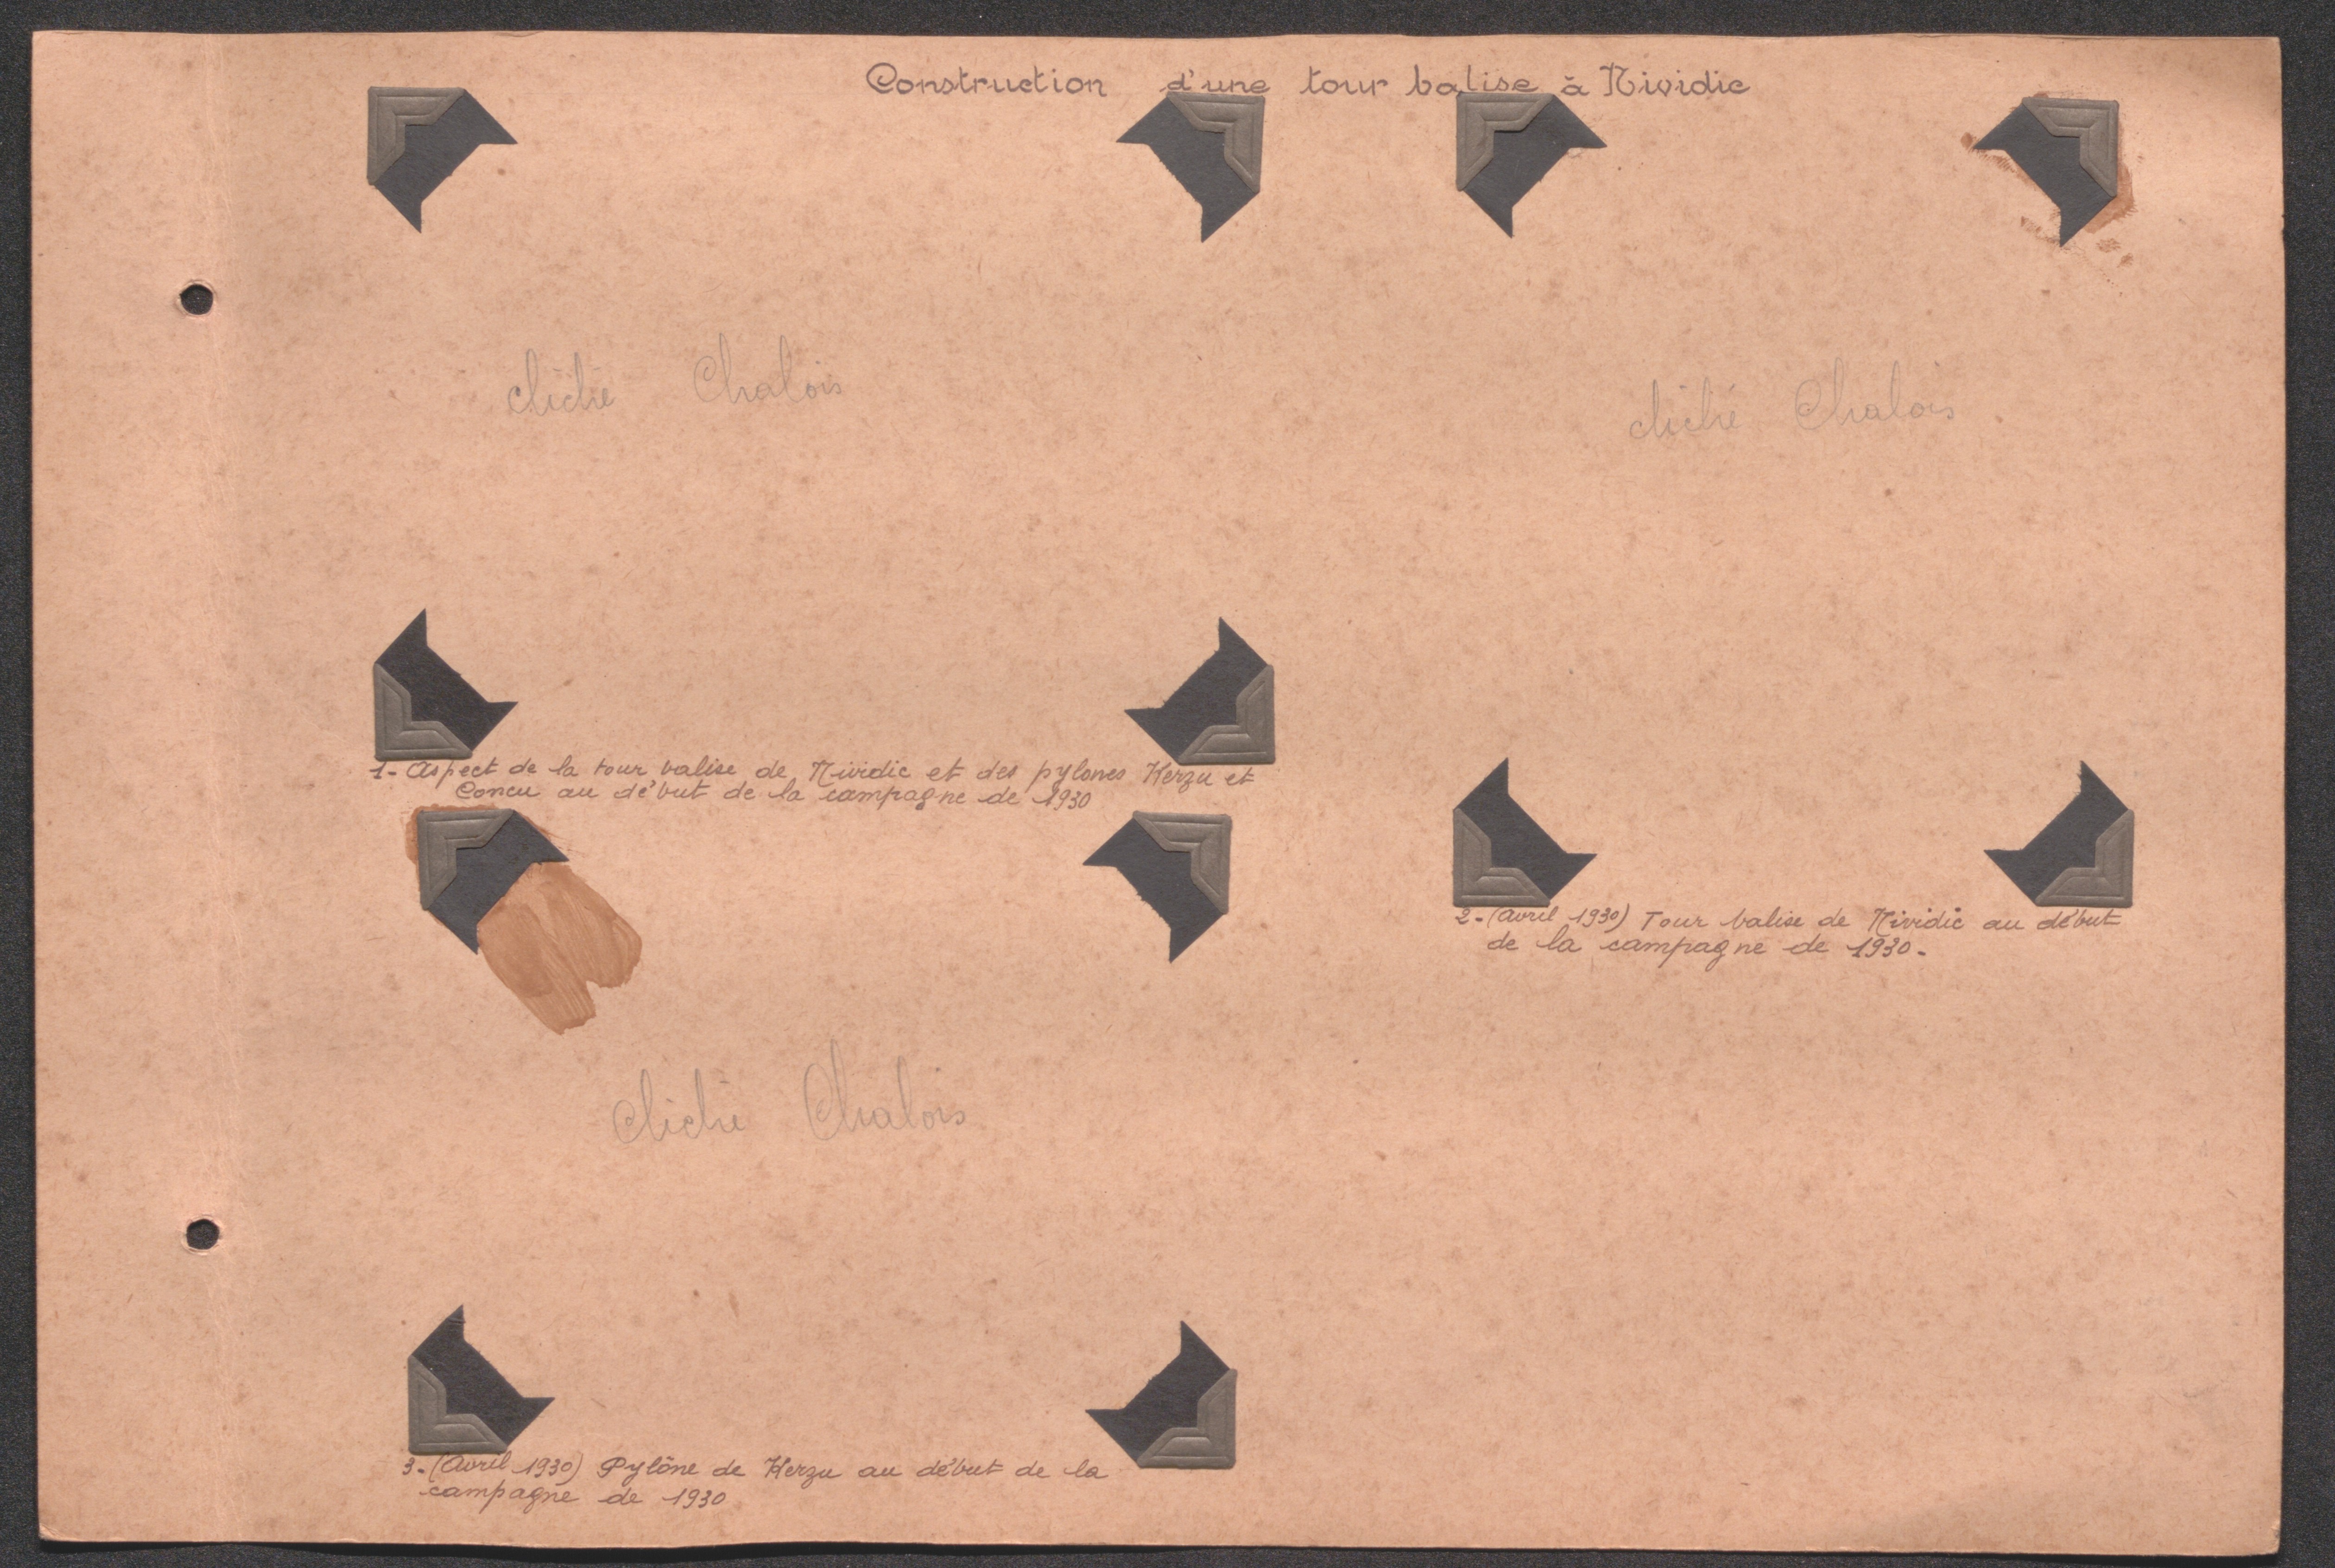 Construction d'une tour balise à Nividic
cliché Chalois
cliché Chalois
1- Aspect de la tour balise de Nividic et des pylones Kerzu et
Concu au début de la campagne de 1930
2-(Avril 1930) Tour balise de Nividic au début
de la campagne de 1930-
cliché Chalois
3-(Avril 1930) Pylône de Kerzu au début de la
campagne de 1930